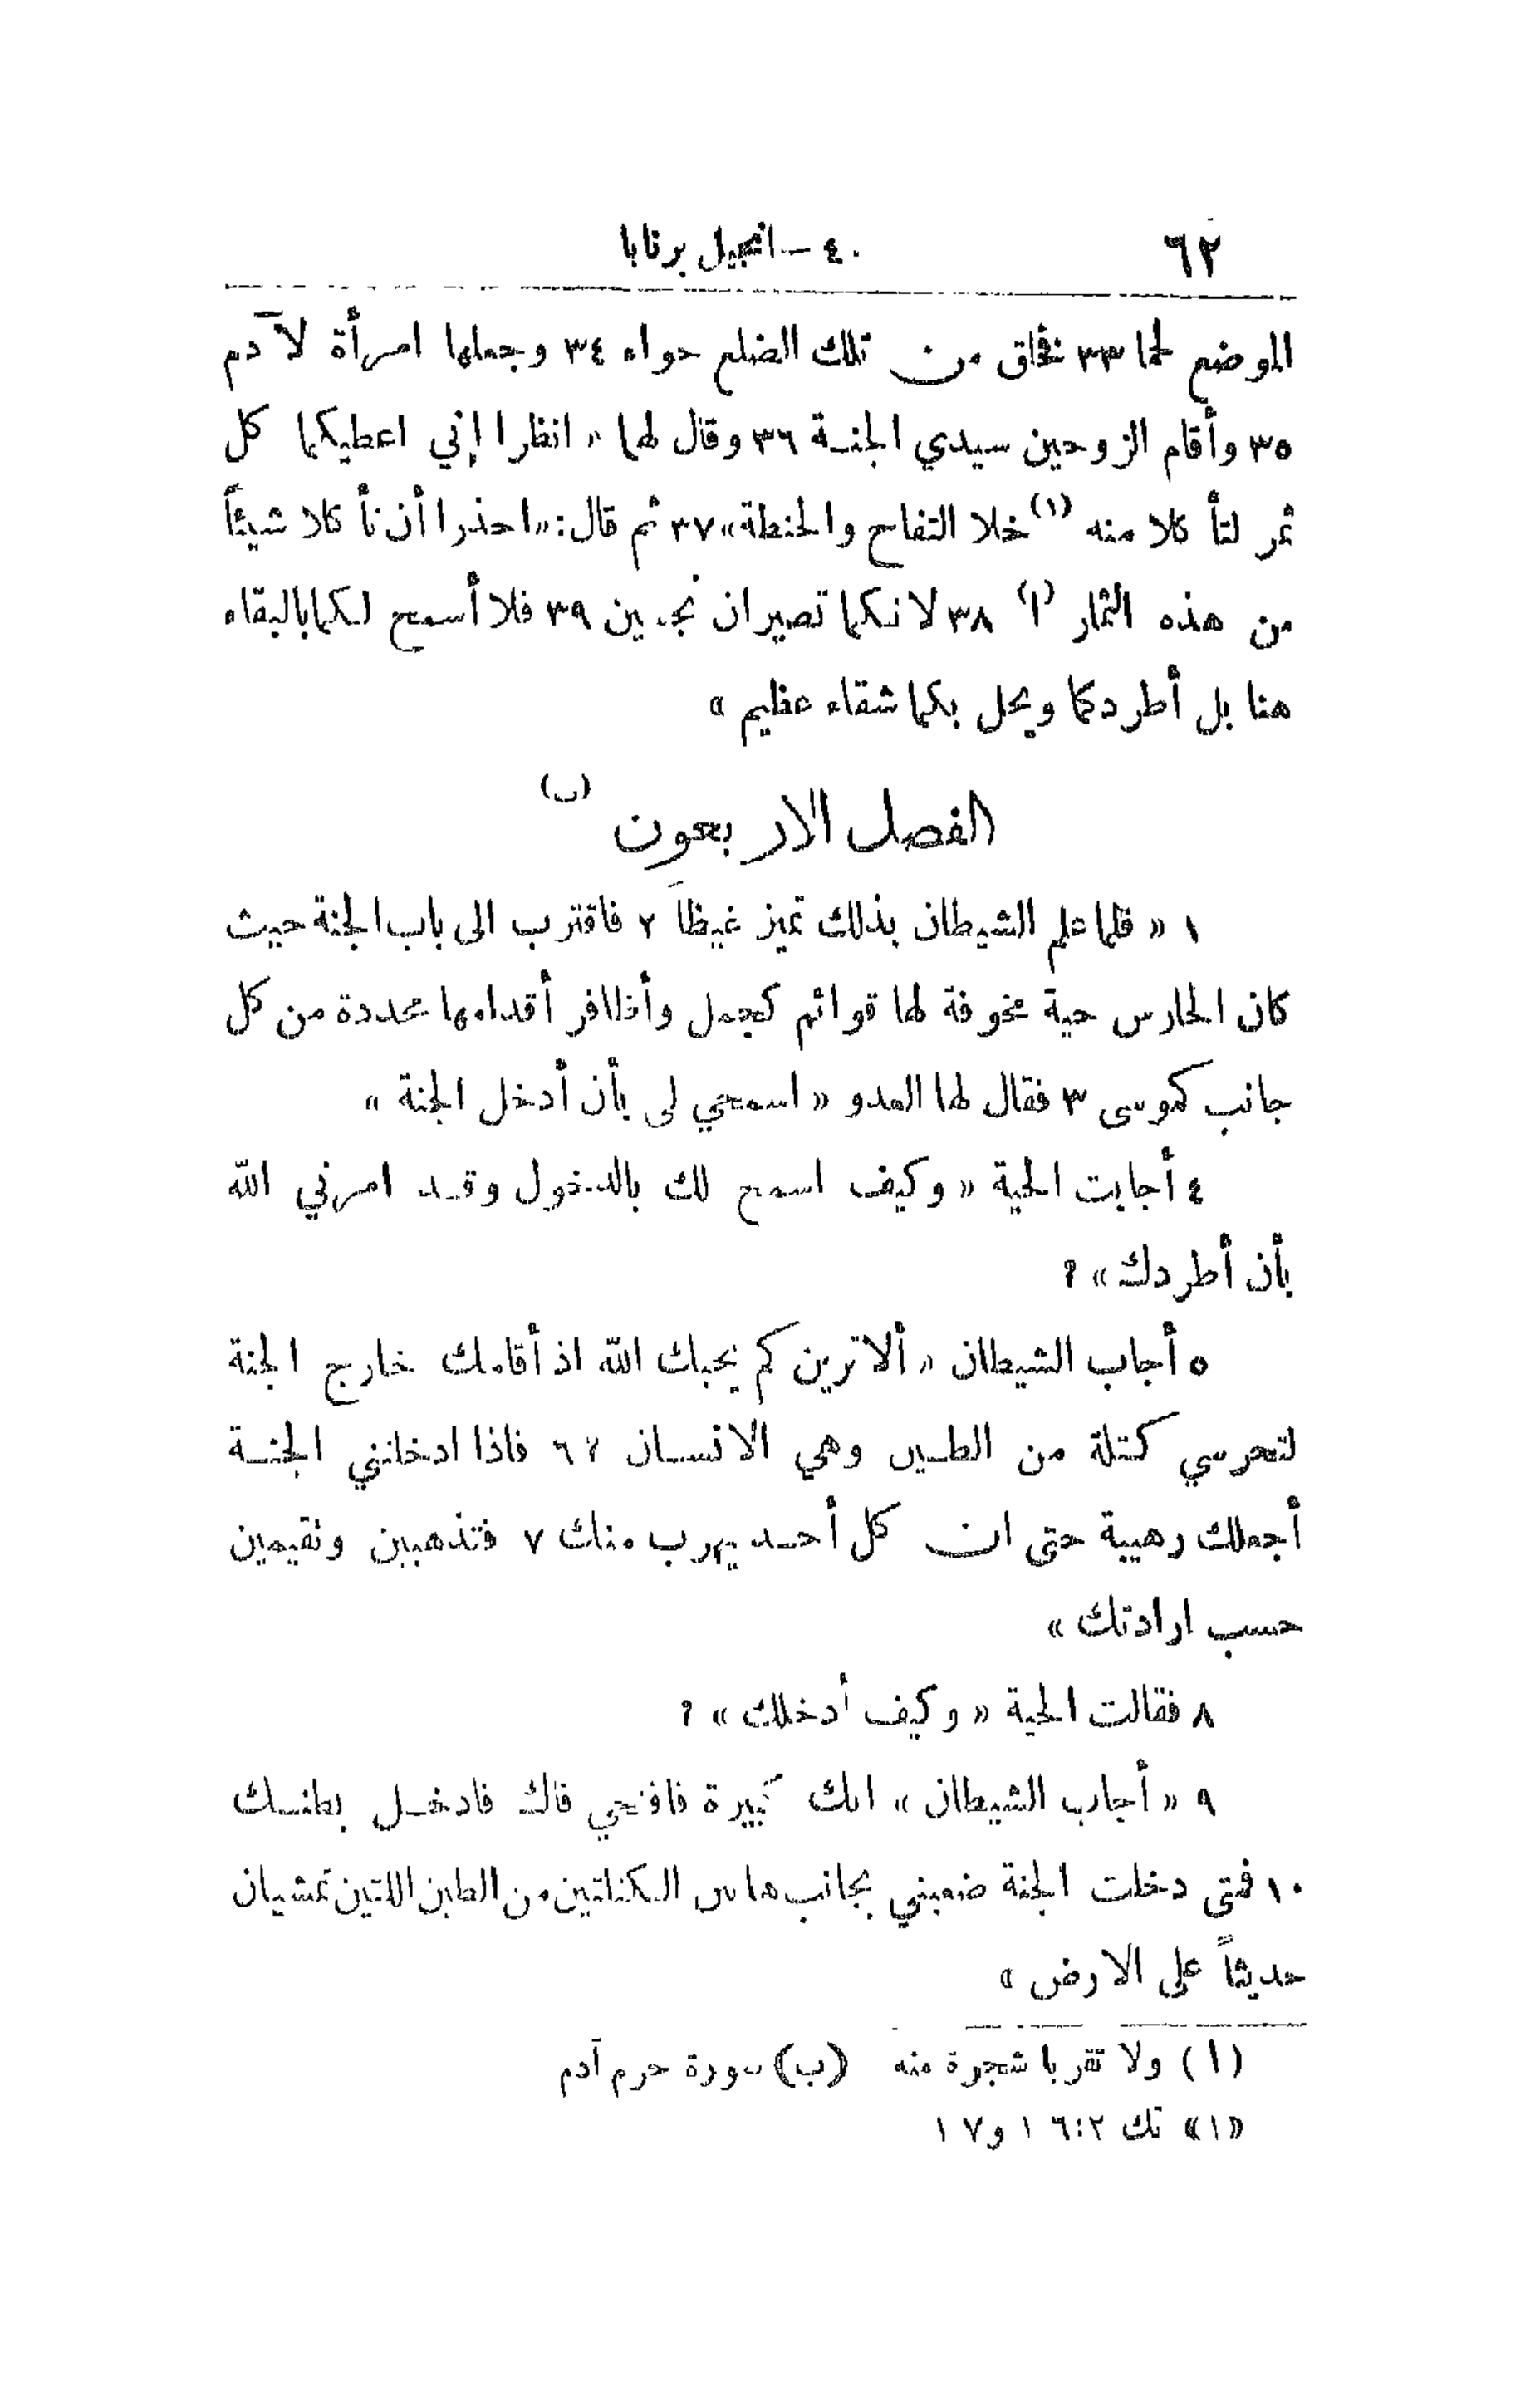 ٦٢
٤٠ – انجيل برنابا
الموضع لحما ٣٣ فخلق من تلك الضلع حواء ٣٤ وجعلها امرأة لآدم
٣٥ وأقام الزوحين سيدي الجنة ٣٦ وقال لهما « انظرا إني اعطيكما كل
ثمر لتأكلا منه (١) خلا التفاح والحنطة » ٣٧ ثم قال: « احذرا أن تأكلا شيئاً
من هذه الثمار (ا) ٣٨ لانكما تصيران نجسين ٣٩ فلا أسمح لكما بالبقاء
هنا بل أطردكما ويحل بكما شقاء عظيم »
الفصل الاربعون (ب)
١ « فلما علم الشيطان بذلك تميز غيظاً ٢ فاقترب الى باب الجنة حيث
كان الحارس حية مخوفة لها قوائم كجمل وأظافر أقدامها محددة من كل
جانب كموسى ٣ فقال لها العدو « اسمحي لى بأن أدخل الجنة »
٤ أجابت الحية « وكيف اسمح لك بالدخول وقد امرني الله
بأن أطردك » ؟
٥ أجاب الشيطان « ألا ترين كم يحبك الله اذ أقامك خارج الجنة
لتحرسي كتلة من الطين وهي الانسان ؟ ٦ فاذا ادخلتني الجنة
أجعلك رهيبة حتى ان كل أحد يهرب منك ٧ فتذهبين وتقيمين
حسب ارادتك »
٨ فقالت الحية « وكيف أدخلك » ؟
٩ « أجاب الشيطان » انك كبيرة فافتحي فاك فادخل بطنك
١٠ فمتى دخلت الجنة ضعيني بجانب هاتين الكتلتين من الطين اللتين تمشيان
حديثاً على الارض »
(ا) ولا تقربا شجرة منه (ب) سورة حرم آدم
«١» تك ٢:١٦ و١٧